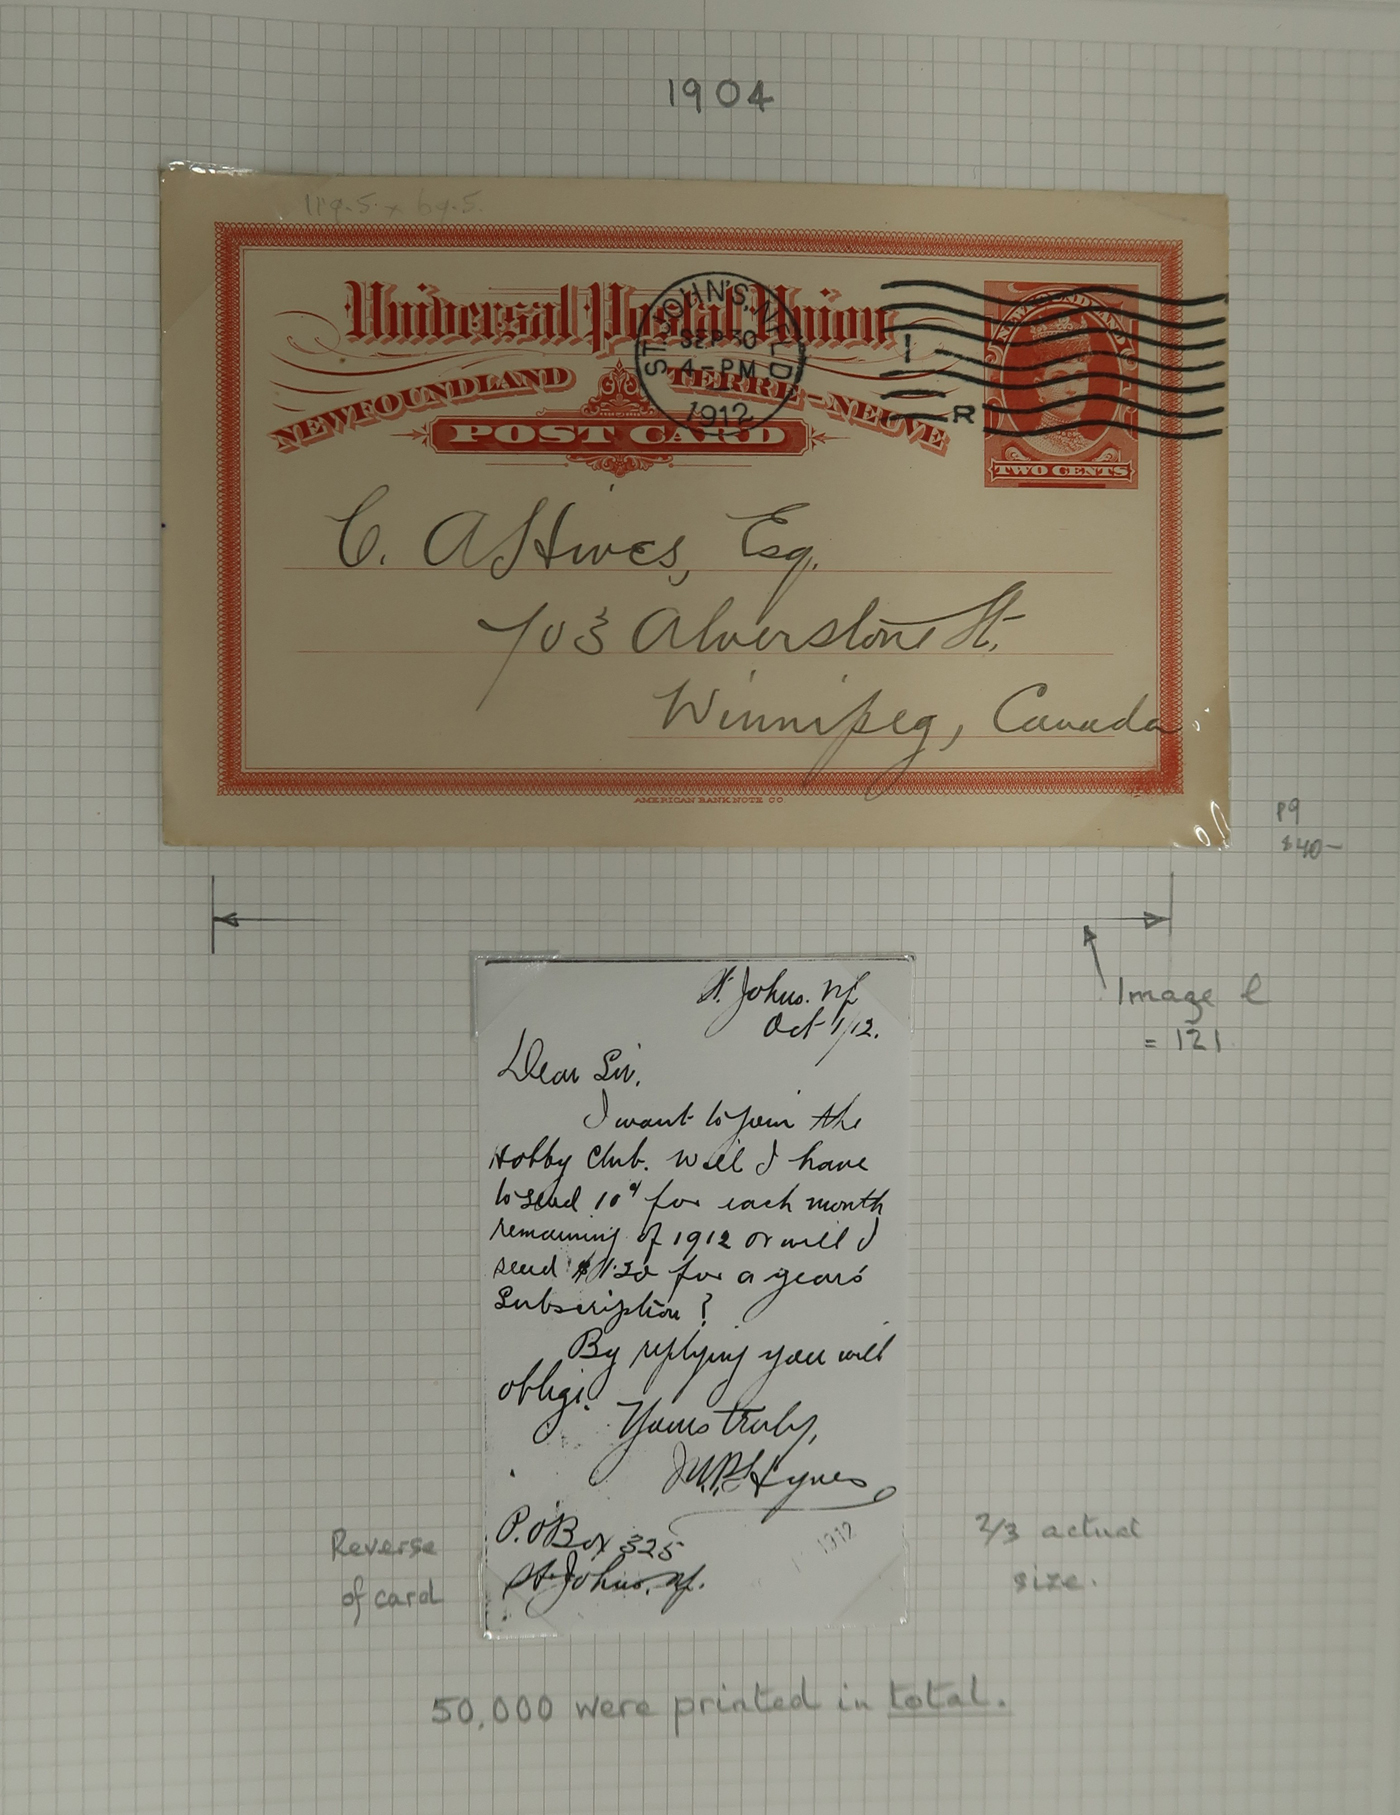 1904
119.5 x 69.5
Universal Postal Union
NEWFOUNDLAND TERRE-NEUVE
POST CARD
ST. JOHN'S, NFLD
SEP 30
4-PM
1912
R
TWO CENTS
C. A Hives, Esq.
703 Alverstone St.
Winnipeg, Canada
AMERICAN BANK NOTE CO.
P9
$40-
Image l
= 121
St. Johns. Nf
Oct 1/12.
Dear Sir,
I want to join the
Hobby Club. Will I have
to send 10¢ for each month
remaining of 1912 or will I
send $1.20 for a years
Subscription?
By replying you will
oblige.
Yours truly,
Hynes
P.O Box 325
St. Johns, Nf.
1912
Reverse
of card
2/3 actual
size.
50,000 were printed in total.